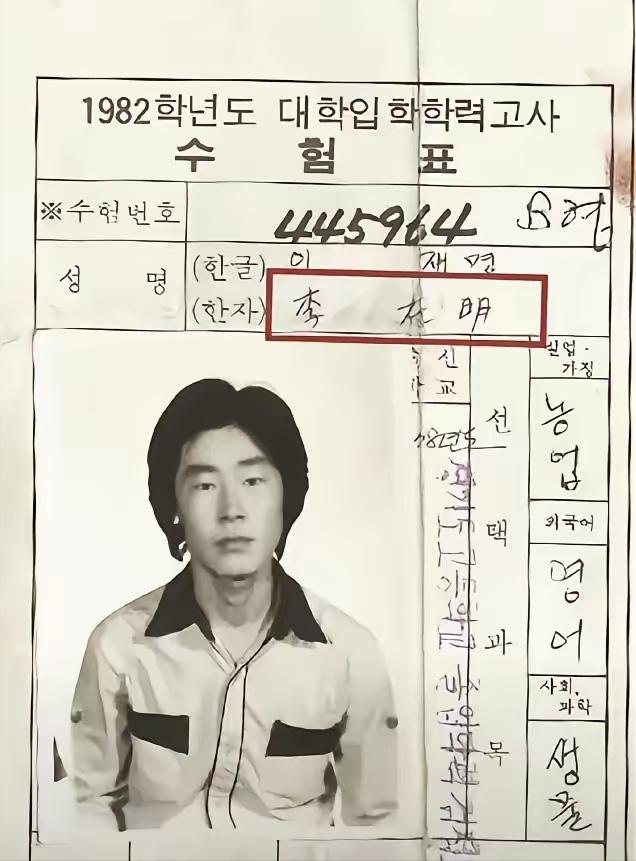 1982학년도 대학입학학력고사
수 험 표
※수험번호 445964 B형
성 명 (한글) 이 재명
(한자) 李 在明
신
교
실업·
가정
농업
선택과목
외국어
영어
사회.
과학
생물